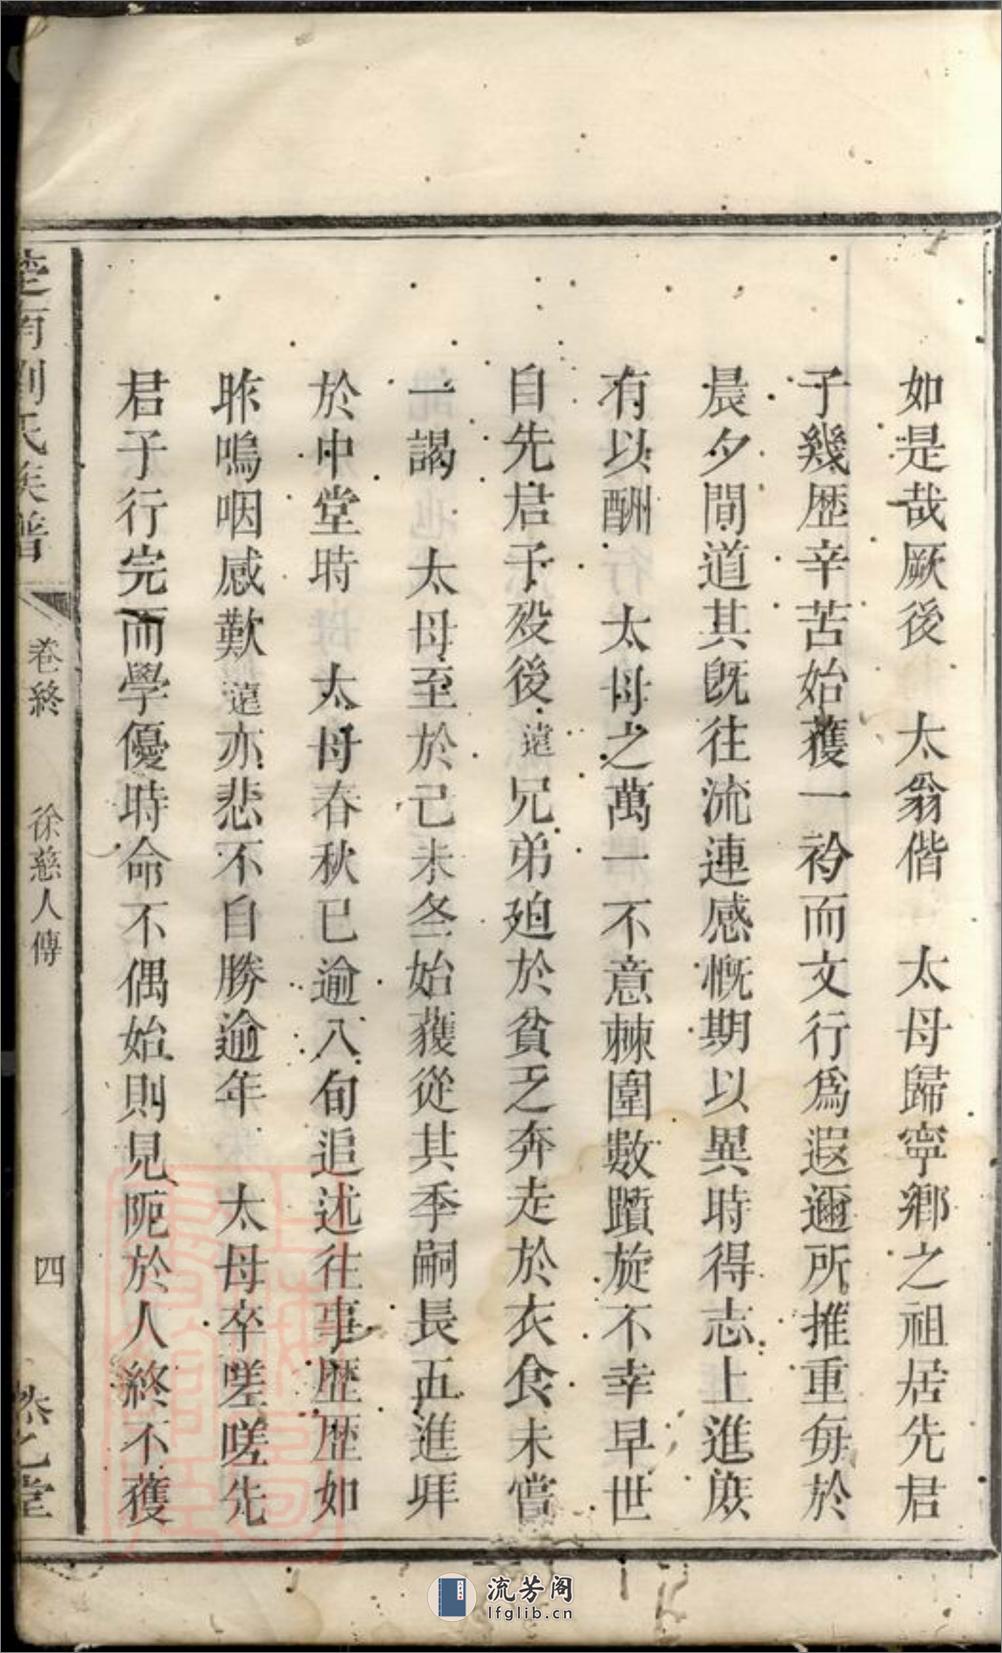 如是哉厥後　太翁偕　太母歸寧鄉之祖居先君
子幾歷辛苦始獲一衿而文行爲遐邇所推重每於
晨夕間道其旣往流連感慨期以異時得志上進庶
有以酬　太母之萬一不意棘圍數躓旋不幸早世
自先君子歿後遠兄弟廹於貧乏奔走於衣食未嘗
一謁　太母至於己未冬始獲從其季嗣長五進拜
於中堂時　太母春秋已逾八旬追述往事歷歷如
昨嗚咽感歎遠亦悲不自勝逾年　太母卒嗟嗟先
君子行完而學優時命不偶始則見阨於人終不獲
楚南劉氏族譜
卷終
徐慈人傳
四
乙堂
流芳阁
lfglib.cn